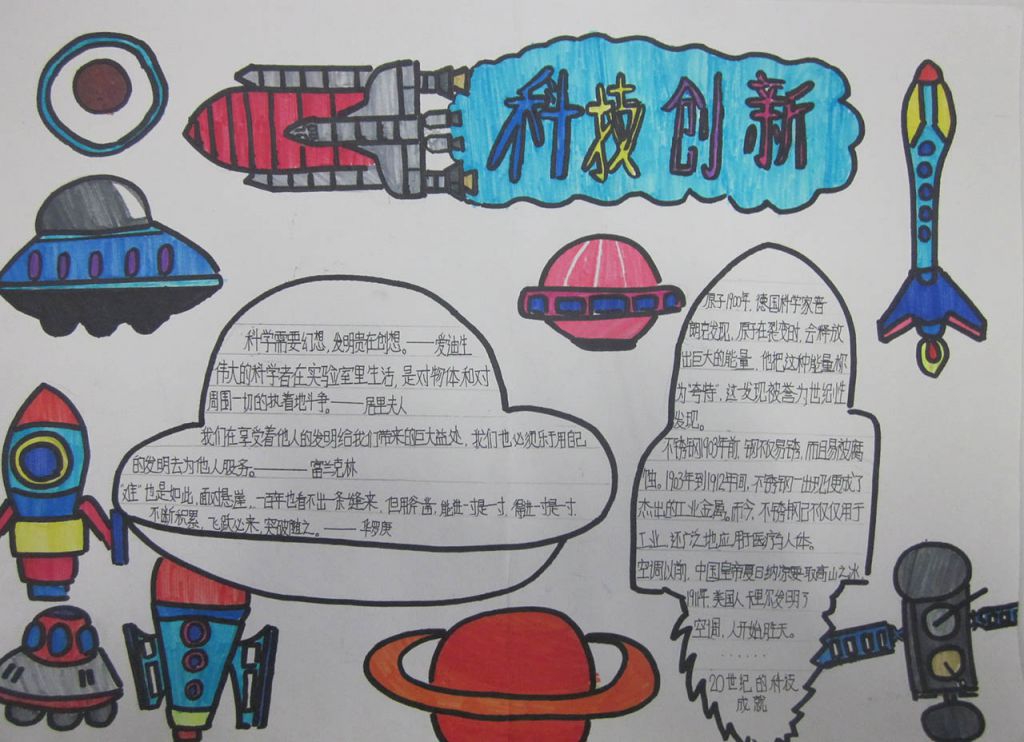 科技创新
科学需要幻想，发明贵在创想。——爱迪生
伟大的科学者在实验室里生活，是对物体和对
周围一切的执着地斗争。——居里夫人
我们在享受着他人的发明给我们带来的巨大益处，我们也必须乐于用自己
的发明去为他人服务。——富兰克林
“难”也是如此，面对悬崖，一百年也看不出一条缝来，但用斧凿，能进一寸是一寸，得进一寸是一寸，
不断积累，飞跃必来，突破随之。——华罗庚
原子1900年，德国科学家普
朗克发现，原子在裂变时，会释放
出巨大的能量，他把这种能量称
为“夸特”，这一发现被誉为世纪性
发现。
不锈钢1903年前，钢不仅易锈，而且易被腐
蚀。1903年到1912年间，不锈钢一出现便成了
杰出的工业金属。而今，不锈钢已不仅仅用于
工业，还广泛地应用于医疗与人体。
空调以前，中国皇帝夏日纳凉要取高山之冰
1911年，美国人卡里尔发明了
空调，人开始胜天。
......
20世纪的科技
成就